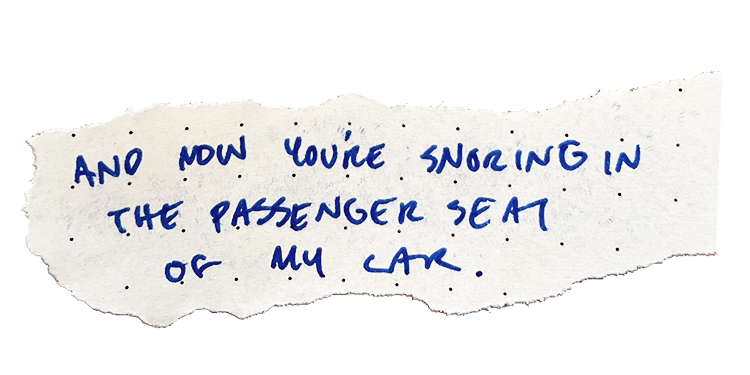 AND NOW YOU'RE SNORING IN
THE PASSENGER SEAT
OF MY CAR.